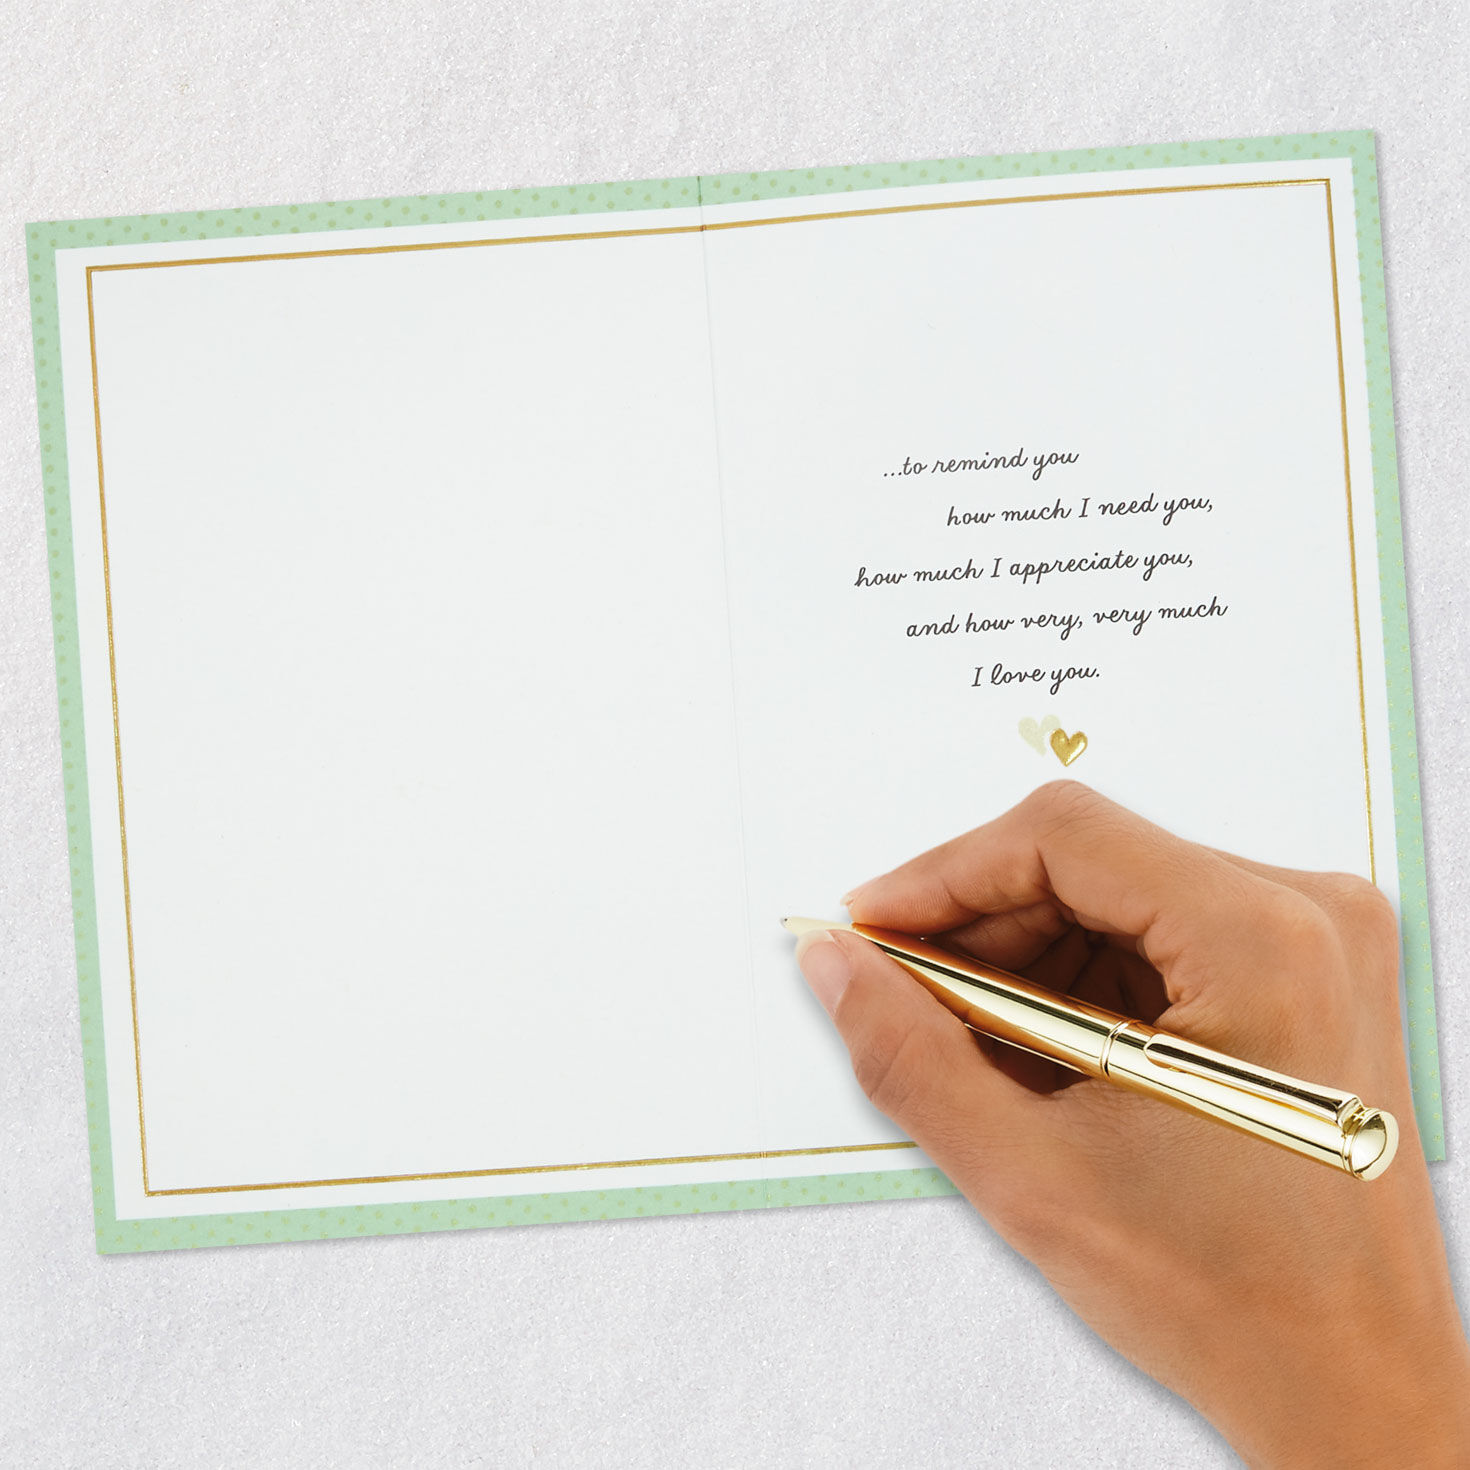 ...to remind you
how much I need you,
how much I appreciate you,
and how very, very much
I love you.